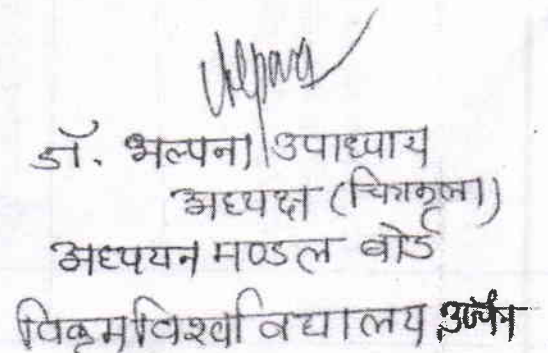 डॉ. अल्पना उपाध्याय
अध्यक्ष (चित्रकला)
अध्ययन मण्डल बोर्ड
विक्रम विश्वविद्यालय उज्जैन